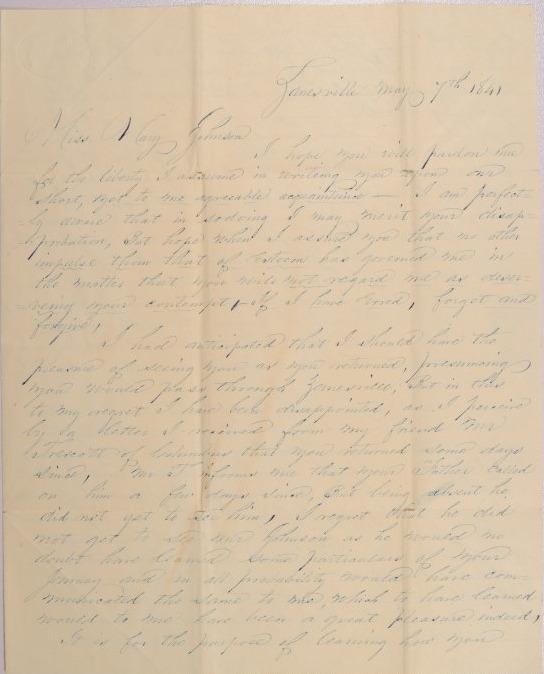 Zanesville May 7th 1841
Miss Mary Johnson
I hope you will pardon me
for the liberty I assume in writing you upon our
short, yet to me agreeable acquaintance — I am perfect-
-ly aware that in so doing I may merit your disap-
-probation, But hope when I assure you that no other
impulse than that of Esteem has governed me in
the matter that you will not regard me as deser-
-ving your contempt, If I have erred, forget and
forgive,
I had anticipated that I should have the
pleasure of seeing you as you returned, presuming
you would pass through Zanesville, But in this
to my regret I have been disappointed, as I perceive
by a letter I received from my friend Mr
of Columbus that you returned some days
since, Mr T informs me that your Father called
on him a few days since, But being absent he
did not get to see him, I regret that he did
not get to see Mr Johnson as he would no
doubt have learned some particulars of your
journey and in all probability would have com-
municated the same to me, which to have learned
would to me have been a great pleasure indeed,
It is for the purpose of learning how you